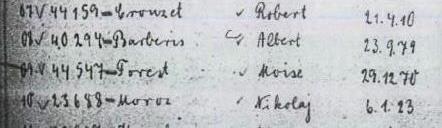 07 √ 44159 - Crouzet √ Robert 21.4.10
08 √ 40294 - Barberis Albert 23.9.79
09 √ 44547 - Forest √ Moise 29.12.70
10 √ 23688 - Moroz √ Nikolaj 6.1.23